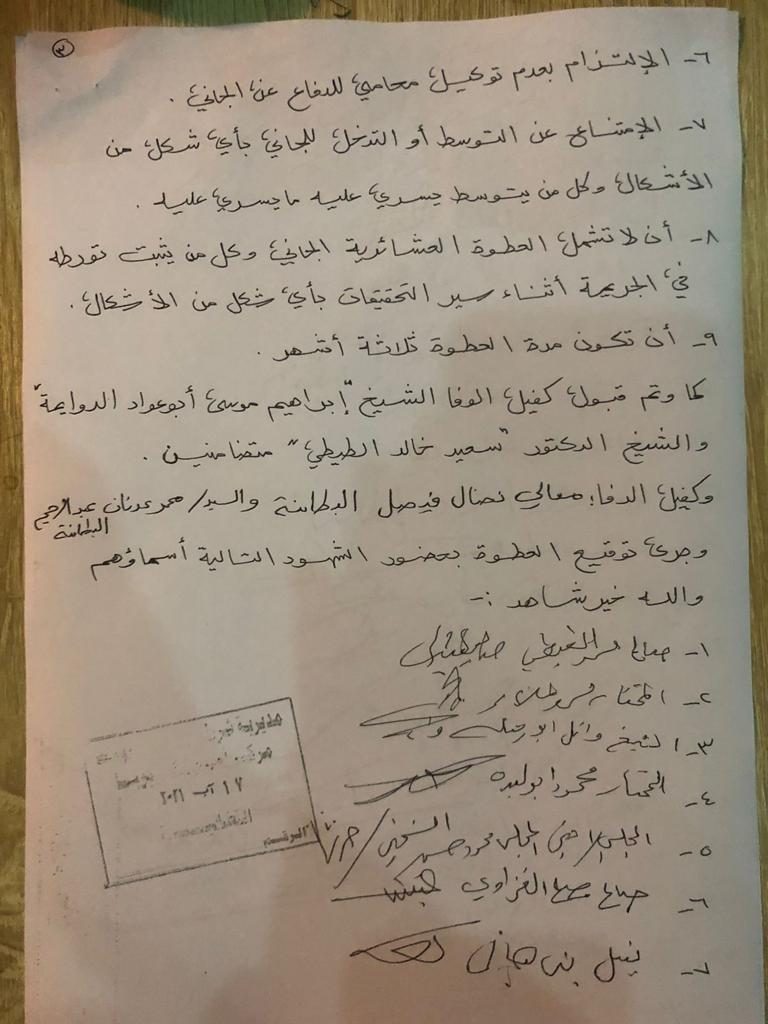 ٣
٦- الإلتزام بعدم توكيل محامي للدفاع عن الجاني .
٧- الإمتناع عن التوسط أو التدخل للجاني بأي شكل من
الأشكال وكل من يتوسط يسري عليه ما يسري عليه .
٨- أن لا تشمل العطوة العشائرية الجاني وكل من يثبت تورطه
في الجريمة أثناء سير التحقيقات بأي شكل من الأشكال .
٩- أن تكون مدة العطوة ثلاثة أشهر .
كما وتم قبول كفيل الوفا الشيخ "إبراهيم موسى أبو عواد الدوايمة"
والشيخ الدكتور "سعيد خالد الطيطي" متضامنين .
وكفيل الدفا: معالي نضال فيصل البطاينة والسيد/ محمد عدنان عبدالرحيم
البطاينة
وجرى توقيع العطوة بحضور الشهود التالية أسماؤهم
والله خير شاهد :-
١-
٢- المختار
٣- الشيخ وائل ابو
٤- المختار محمود ابولبده
٥- محمود حسن
٦- صالح الغزاوي
٧- بني هاني
مديرية
١٧ آب ٢٠٢١